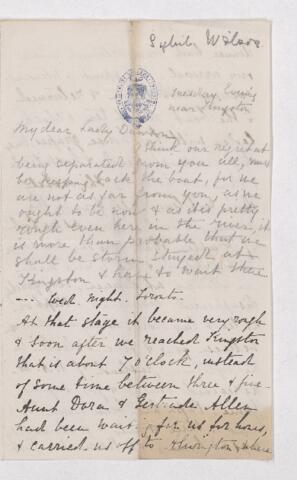 Tuesday Evening
near Kingston
My dear Lady
I think our regret at
being separated from you all, must
be keeping back the boat, for we
are not as far from you, as we
ought to be now & as it is pretty
rough even here in the river, it
is more than probable that we
shall be storm stayed at
Kingston & have to wait there
--- Wed. Night. Toronto.
At that stage it became very rough
& soon after we reached Kingston
that is about 7 o'clock, instead
of some time between three & five
Aunt Dora & Gertrude Allen
had been waiting for us for hours,
& carried us off to where